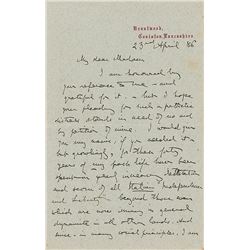 Brantwood,
Coniston, Lancashire.
23rd April 86
My dear Madam
I am honoured by
your reference to me - and
grateful for it - but I hope
your pleading for such a pathetic
distress stands in need of no aid
by petition of mine. I would give
you my name, if you needed it
but grudgingly, for these forty
years of my past life have been
spent in
and scorn of all Italian
and beyond those even
which are now arising by general
dynamite in all other lands. And
since - in many social principles, I am